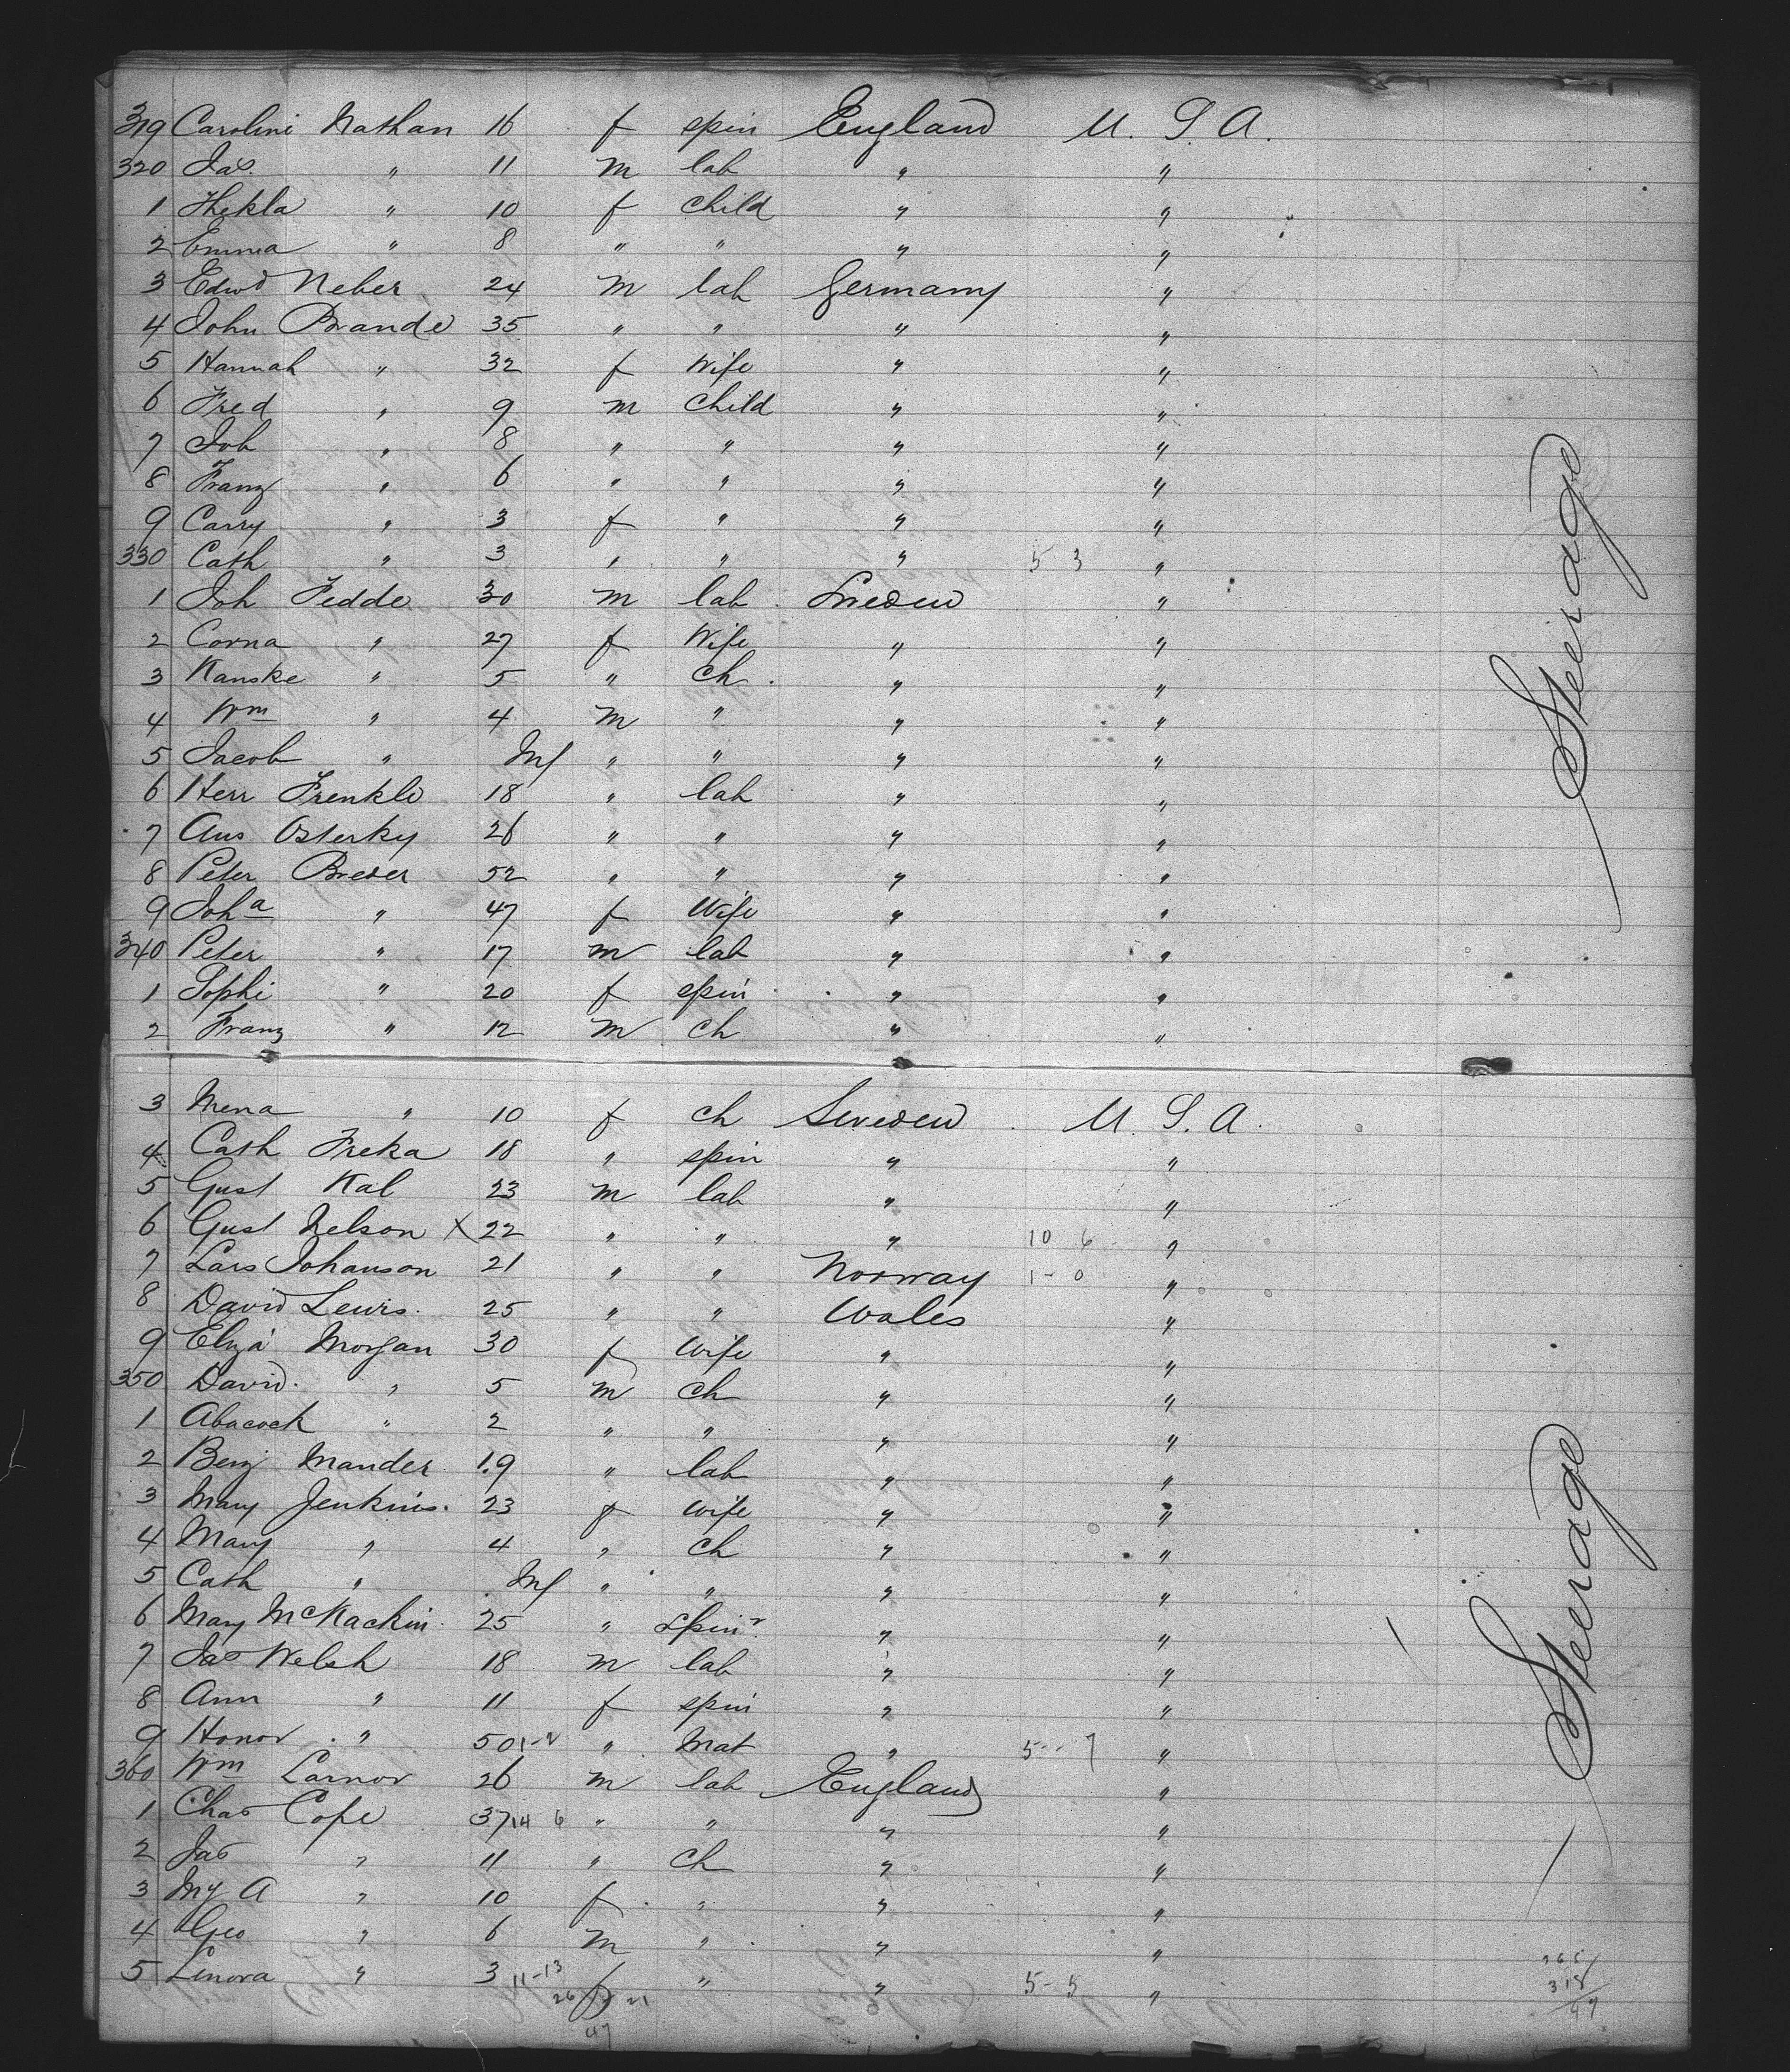 319 Carolini Nathan 16 f spin England U. S. A.
320 Jas. " 11 m lab " "
1 Thekla " 10 f child " "
2 Emma " 8 " " " "
3 Edwd Neber 24 m lab Germany "
4 John Brande 35 " " " "
5 Hannah " 32 f Wife " "
6 Fred " 9 m child " "
7 Joh " 8 " " " "
8 Franz " 6 " " " "
9 Carry " 3 f " " "
330 Cath " 3 " " " 5 3 "
1 Joh Fedde 30 m lab Sweden "
2 Corna " 27 f Wife " "
3 Kanske " 5 " ch " "
4 Wm " 4 m " " "
5 Jacob " Inf " " " "
6 Herr Frenkle 18 " lab " "
7 Aus Osterky 26 " " " "
8 Peter Breder 52 " " " "
9 Joha " 47 f Wife " "
340 Peter " 17 m lab " "
1 Sophi " 20 f spin " "
2 Franz " 12 m ch " "
Steerage
3 Mena " 10 f ch Sweden U. S. A.
4 Cath Freka 18 " spin " "
5 Gust Kal 23 m lab " "
6 Gust Nelson X 22 " " " 10 6 "
7 Lars Johanson 21 " " Norway 1-0 "
8 David Lewis 25 " " Wales "
9 Eliza Morgan 30 f Wife " "
350 David " 5 m ch " "
1 Abacock " 2 " " " "
2 Benj Mander 19 " lab " "
3 Mary Jenkins 23 f wife " "
4 Mary " 4 " ch " "
5 Cath " Inf " " " "
6 Mary McKackin 25 " Spinr " "
7 Jas Welsh 18 m lab " "
8 Ann " 11 f spin " "
9 Honor " 50 1-2 " Mat " 5-7 "
360 Wm Larnor 26 m lab England "
1 Chas Cope 37 14 6 " " " "
2 Jas " 11 " ch " "
3 My A " 10 f " " "
4 Geo " 6 m " " "
5 Lenora " 3 11-13 f " " 5-5 "
26 21
47
Steerage
365
318
47